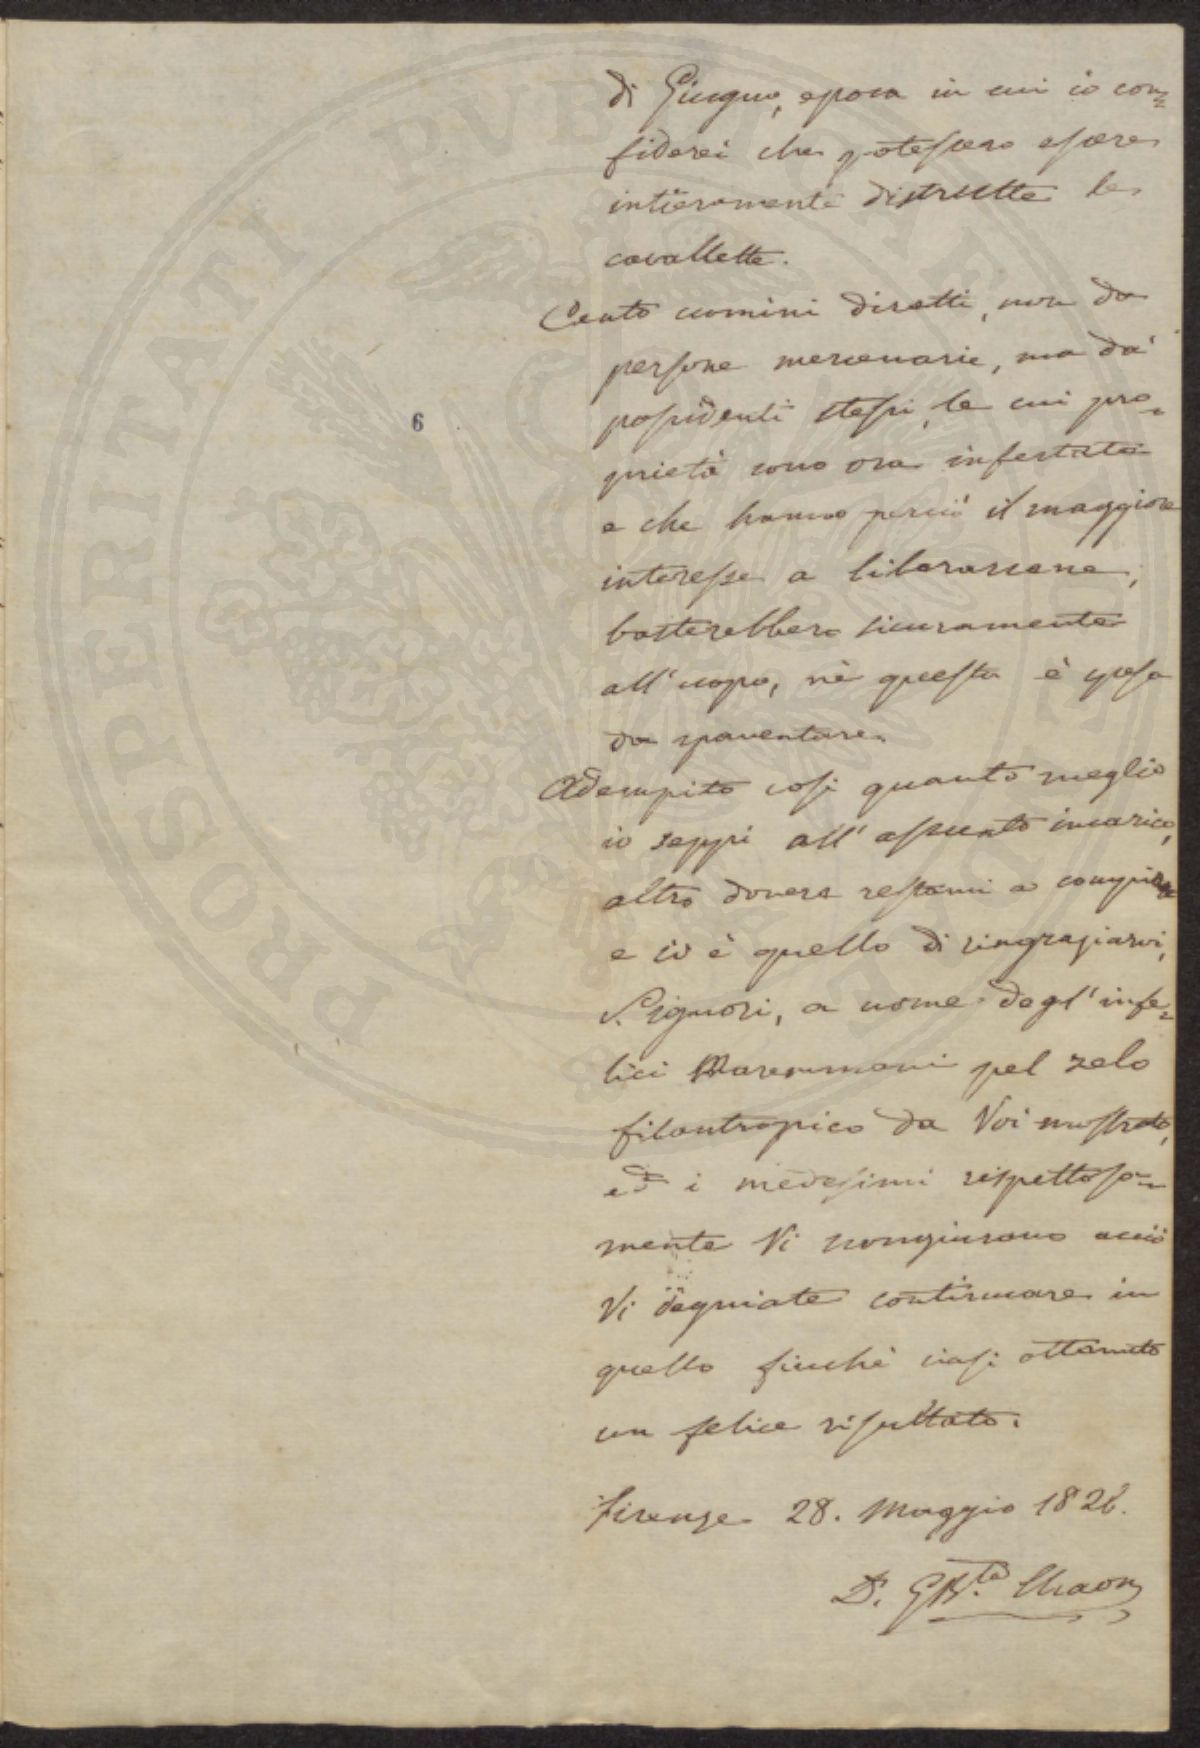 di Giugno, epoca in cui io con=
fiderei che potessero essere
intieramente distrutte le
cavallette.
Cento uomini diretti, non da
persone mercenarie, ma da'
possidenti stessi, le cui pro=
prietà sono ora infestate
e che hanno perciò il maggiore
interesse a liberarsene,
basterebbero sicuramente
all'uopo, nè questa è spesa
da spaventare.
6
Adempito così quanto meglio
io seppi all'assunto incarico,
altro dovere restami a compire
e ciò è quello di ringraziarvi,
Signori, a nome degl'infe=
lici Maremmani pel zelo
filantropico da Voi mostrato,
ed i medesimi rispettosa=
mente Vi scongiurano acciò
Vi degniate continuare in
quello finchè siasi ottenuto
un felice risultato.
Firenze 28. Maggio 1826.
D. GBta
PROSPERITATI PUBLICAE AUGENDAE